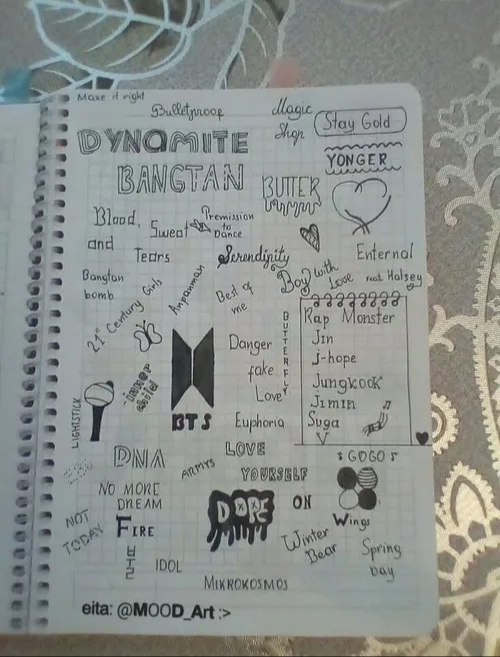 Make it right
Bulletproof
Magic
Shop
Stay Gold
DYNAMITE
YONGER
BANGTAN
BUTTER
Blood,
Sweat
and
Tears
Premission
to
Dance
Serendipity
Enternal
Bangtan
bomb
21st Century Girls
Anpanman
Best of
me
Boy with
Love feat Halsey
BUTTERFLY
Rap Monster
Jin
J-hope
Jungkook
Jimin
Suga
V
Danger
fake
Love
BTS
Euphoria
LIGHTSTICK
DNA
ARMYS
LOVE
YOURSELF
GOGO
NO MORE
DREAM
DOPE
ON
Wings
NOT
TODAY
FIRE
Winter
Bear
Spring
bay
IDOL
MIKROKOSMOS
eita: @MOOD_Art :>